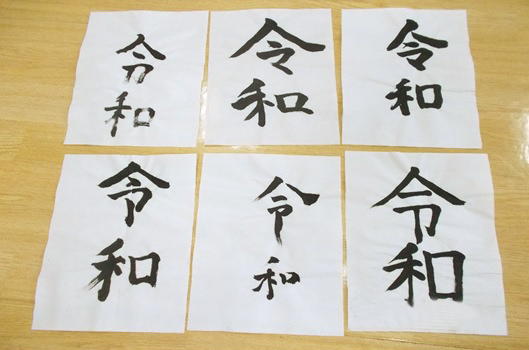 令
和
令
和
令
和
令
和
令
和
令
和